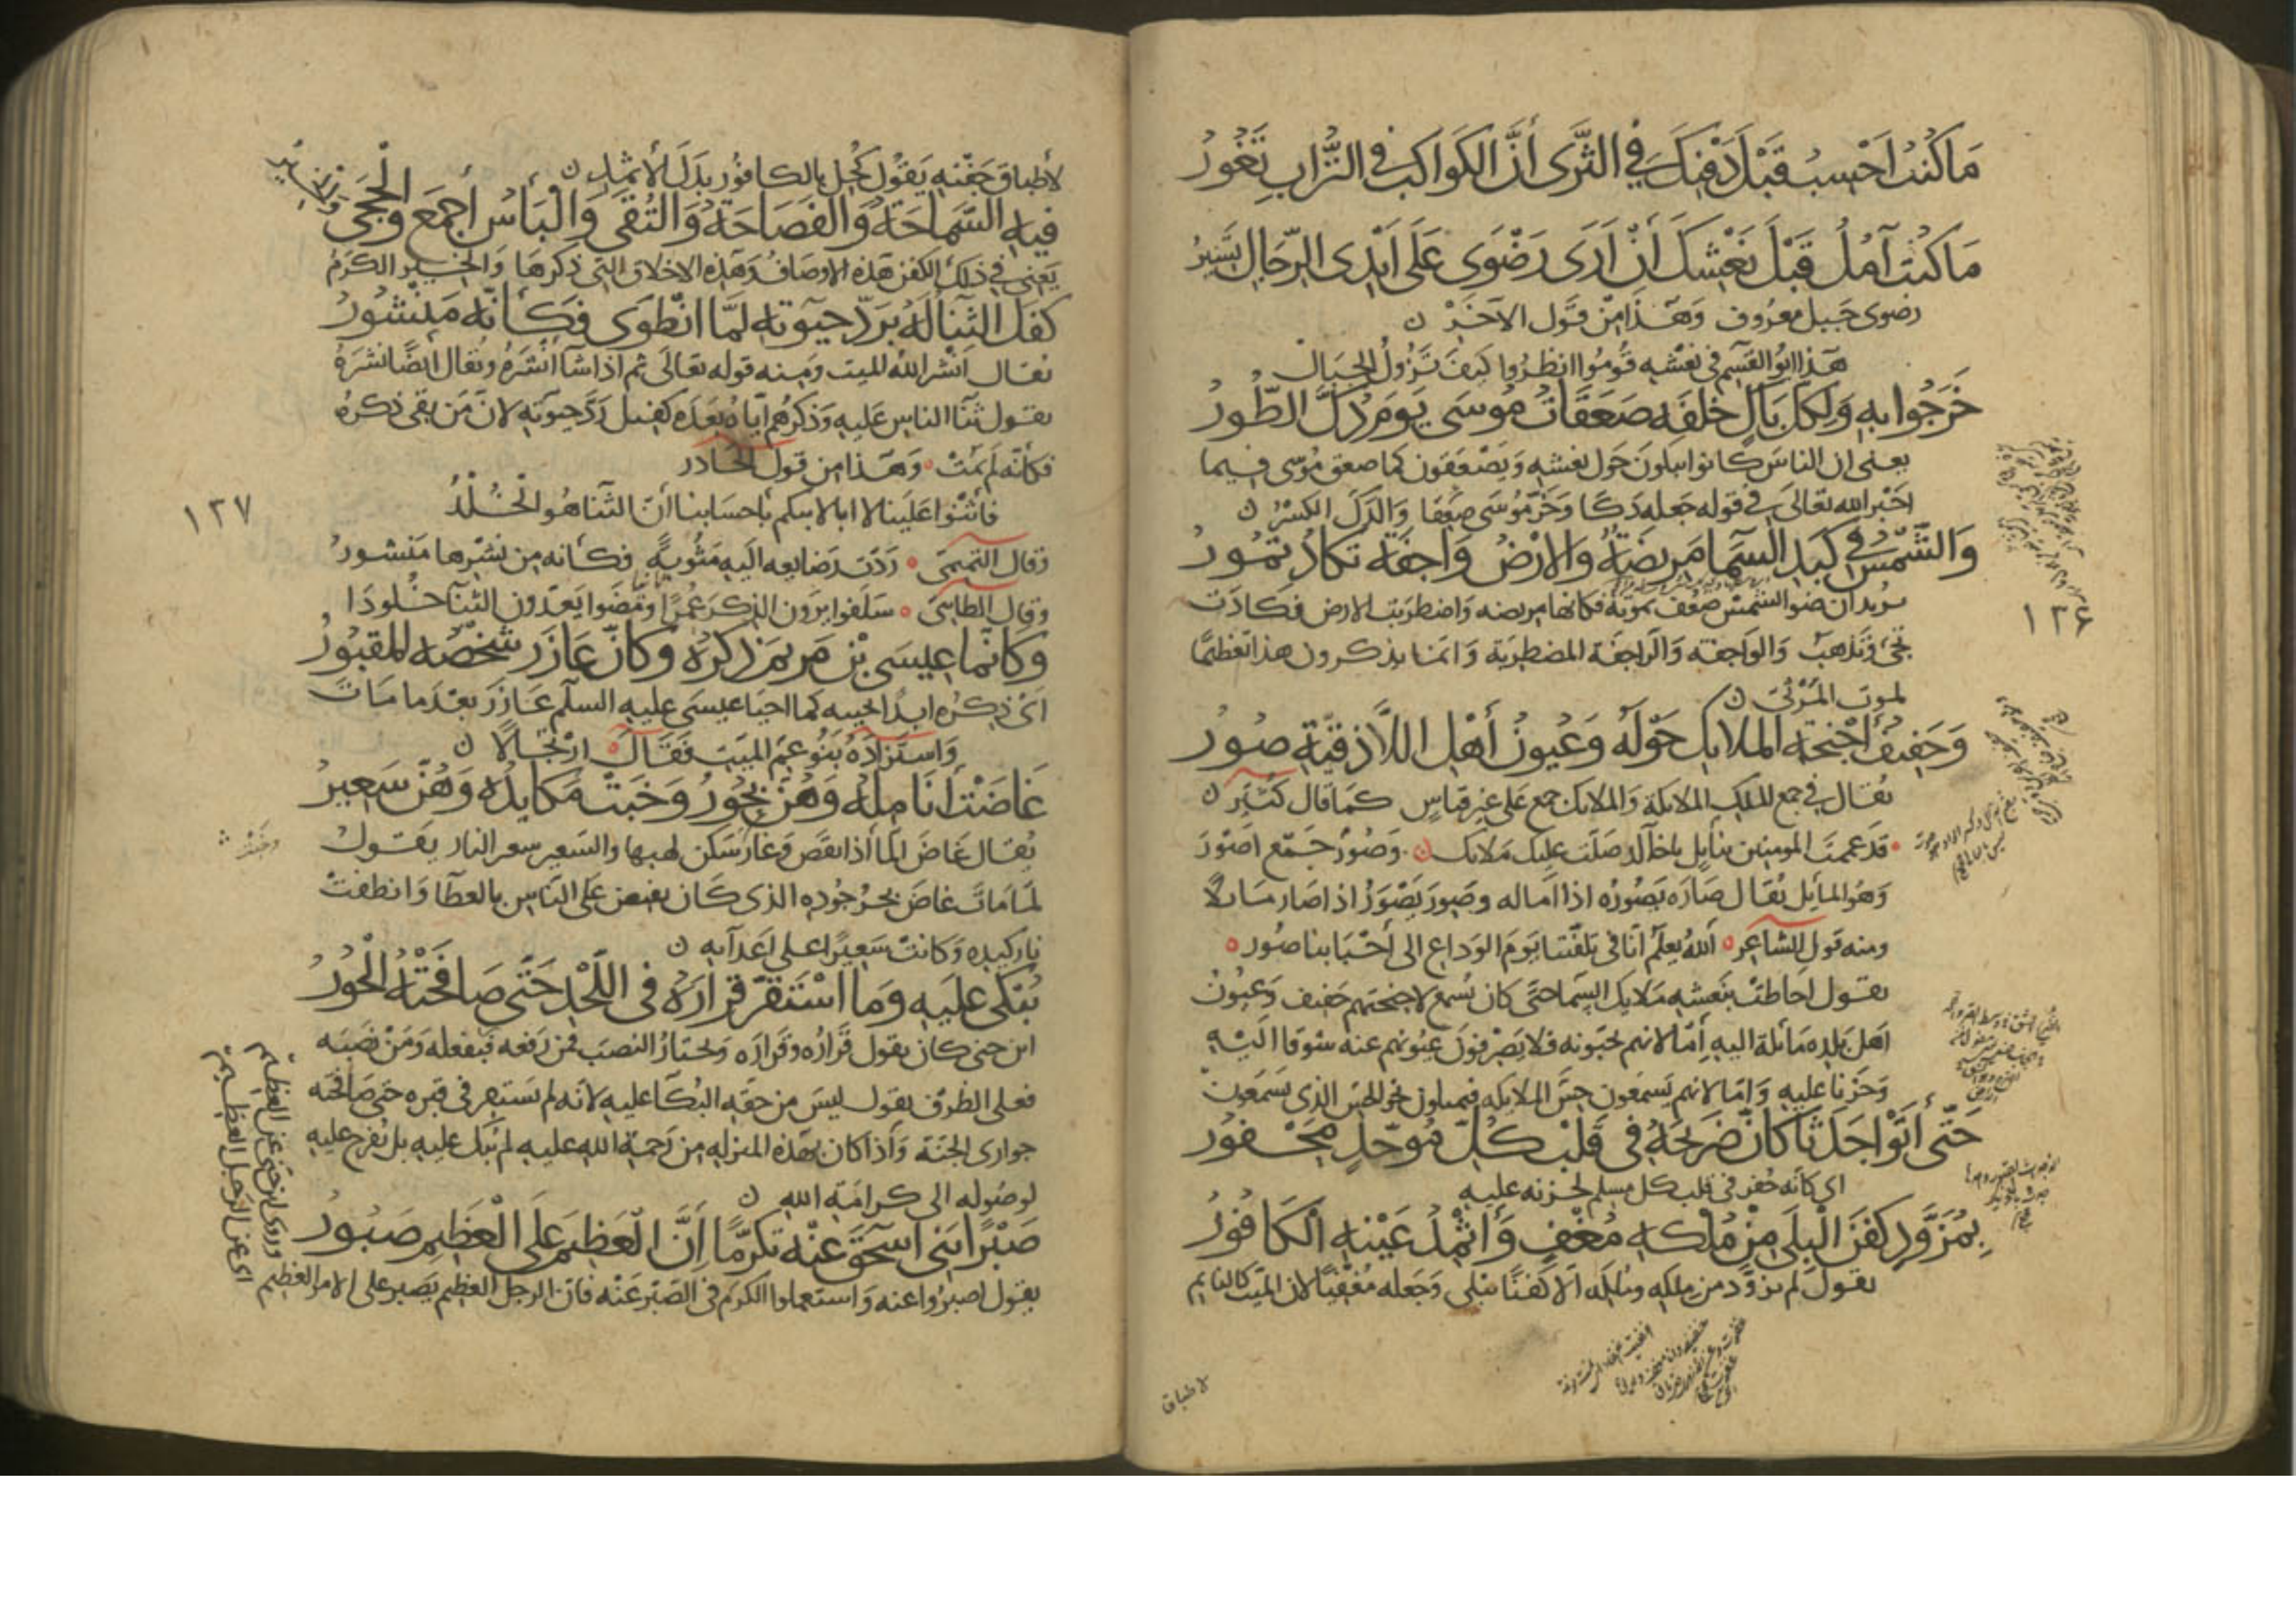 مَا كُنْتُ اَحْسِبُ قَبْلَ دَفْنِكَ فِي الثَّرَى أَنَّ الكَوَاكِبَ فِي التُّرَابِ تَغُورُ
مَا كُنْتُ آمُلُ قَبْلَ نَعْشِكَ أَنْ اَرَى رَضْوَى عَلَى اَيْدِى الرِّجَالِ تَسِيرُ
رضوى جَبل معرُوف وَهَذَا مِنْ قَول الآخَرْ ن
هَذا ابوُ القسِم فى نعْشِه قُومُوا انظرُوا كيفَ تَزُولُ الجِبَالْ
خَرَجُوا بِهِ وَلِكلّ بَاكٍ خَلْفَه صَعَقَاتُ مُوسَى يَومَ دُكَّ الطُّورُ
يعنى ان الناسَ كانوا يبكونَ حَول نعشه وَيُصْعَقون كما صعق مُوسى فيما
اخبر الله تعَالى فى قوله جَعله دَكّا وَخَرَّ مُوسَى صَعِقا وَالدَكّ الكَسْرُ ن
وَالشَّمْسُ فِي كَبَدِ السَّمَا مَريضَةٌ وَالارْضُ وَاجِفَة تكادُ تمُورُ
يريد ان ضو الشمس ضعُف بموته فكانها مريضه وَاضطرَبت الارض فكادَت
تجئ وَتذهَبُ وَالوَاجفه وَالرّاجفَة المضطربَة وَانما يذكرون هذا تعظيمًا
لموت المَرْثى ن
وَحَفِيفُ أَجْنِحَةِ المَلايِكِ حَوْلَهُ وَعُيُونُ أَهْلِ اللاَّذِقِيَّةِ صُورُ
يُقال فى جمع الملكِ الملايكة وَالملايك جمع عَلى غير قياسٍ كمَا قال كُثَيّر ن
قد عممتَ المومنين بنايلٍ ابا خالد صَلّت عليكَ مَلايك ن وَصُورٌ جَمْع اصْوَرَ
وَهُو المايل يُقال صَارَه يَصُورُه اذا اَماله وصَوِرَ يَصْوَرُ اذا صَار مَايلاً
ومنه قول الشاعِر اللهُ يعلم انّا فى تلفّتنا يَومَ الوَدَاعِ الى أحْبَابنا صُورُ
يقول احَاطت بنعشه مَلايك السَّمَا حتَى كان يُسمع لاجنحتهم حَفيف وَعيُونُ
اهل بَلدِه مَائلة اليه اِمّا لانهم يحبّونه فلا يَصْرِفونَ عيُونهم عنه شوقا اليْهِ
وَحَزنا عليه وَامّا لانهم يَسمَعون حِسَّ الملايكه فيميلون نحو الحسّ الذى يَسمَعونْ
حَتَّى أَتَوْا جَدَثًا كَأَنَّ ضَرِيحَهُ فِى قَلْبِ كُلِّ مُوَحِّدٍ مَحْفُورُ
اى كانه حُفر فى قلب كل مسلم لحزنه عليه
بِمُزَوَّدٍ كَفَنَ الْبِلَى مِنْ مُلْكِهِ مُغْفٍ وَاثْمِدُ عَيْنِهِ الكَافُورُ
يقول لم يزوَّد من ملكه الا كفنًا يبلى وَجَعله مُغفيًا لان الميّت كالنايم
١٢٦
لاطباق
لأطباق جَفْنِهِ يَقُول كُحِل بالكافُور بدَل الأثمِدِ ن
فيهِ السَّمَاحَةُ وَالفَصَاحَةُ وَالتُّقَى وَالْبَأسُ أَجْمَع وَالْحِجَى وَالخِيرُ
يَعنى فى ذلك الكفن هَذه الاوصَافُ وَهَذِه الاخلاق التى ذكرَها وَالخِير الكرَمُ
كَفَلَ الثَّنَا لَهُ بِرَدِّ حَيوتِهِ لَمَّا انْطَوَى فَكَأَنَّهُ مَنْشُورُ
يُقال اَنشر اللهُ الميت ومنه قوله تعَالى ثم اذا شا اَنْشَرَهُ ويُقال ايضًا نشرَهُ
يقول ثنَا الناس عَليه وَذكرُهم ايّاهُ بَعْدَه كفِيل بِرَدِّ حيوتِه لانَّ مَن بقى ذكرُهُ
فكانّه لَم يَمُتْ وَهَذا من قول الحادر
فاَثْنُوا عَلَينا لا ابا لابيكم بأحسَابنا انّ الثَّنا هُو الْخُلْدُ
وَقال التّميمى رَدّت صَنايعه اليه حياته فكانه من نشرها مَنشورُ
وقال الطائى سَلفوا يَرَون الذِكرَ عُمْرًا وَمَضوا يَعُدّون الثّناَ خُلودَا
وَكَأَنَّمَا عِيسَى بْنُ مَرْيَمَ ذِكرُهُ وَكَأَنَّ عَازَرَ شَخْصُهُ المَقْبُورُ
اى ذِكرُه ابدًا يحييه كما احيَا عيسَى عليه السلم عَازَرَ بعْدَما مَاتَ
وَاستَزَادَهُ بَنُو عَمِّ الميّت فَقَالَ ارْتجَالاً ن
غَاضَتْ أَنَامِلُهُ وَهُنَّ بُحُورُ وَخَبَتْ مَكَايِدُه وَهُنَّ سَعِيرُ
يُقال غَاضَ المَا اذا نقَصَ وَغارَ سَكن لهبها والسّعير سعر النار يَقول
لمّا مَاتَ غاضَ بحرُ جُوده الذى كان يفيض عَلى النّاس بالعطا وَانطفتْ
نار كيده وَكانتْ سَعيرًا على اعدَايه ن
يُبْكَى عَلَيهِ وَمَا اسْتَقَرَّ قَرَارُهُ فِى اللَّحْدِ حَتَّى صَافَحَتْهُ الْحُورُ
ابن جنى كان يقول قرَارُه وقَرَارَه وَيختارُ النصبَ فمن رَفعه فبفعله وَمَنْ نصَبَه
فعلى الظرْف يقول ليسَ من حقّه البُكا عليه لانّه لم يستقر فى قبره حتى صَافحته
جوارى الجَنّة وَاذا كان بهَذه المنزله من رَحمة الله عليه لم يُبك عليه بل يُفرح عليه
لوصُوله الى كرامَة الله ن
صَبْرًا بَنِى اسحَقَ عَنْهُ تَكَرُّمًا إِنَّ الْعَظِيمَ عَلَى الْعَظِيمِ صَبُورُ
يقول اصبرُوا عنه وَاستعملوا الكرمَ فى الصّبر عَنْه فان الرجل العظيم يَصبر على الامر العظيم
وروى ابن جنى عن العظيم
اى عن الرجل العظيم
١٢٧